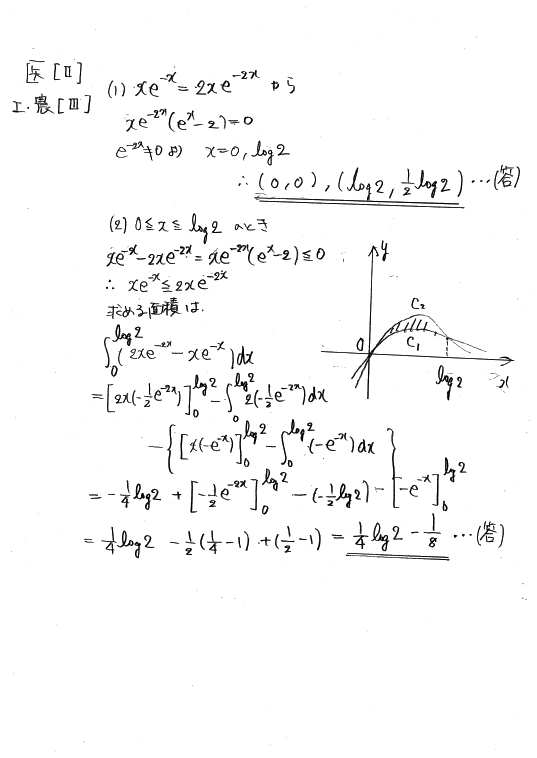 医[Ⅱ]
工・農[Ⅲ]
(1) xe^{-x} = 2xe^{-2x} から
xe^{-2x}(e^x-2)=0
e^{-2x}≠0 より x=0, log2
∴ (0,0), (log2, 1/2 log2) …(答)
(2) 0≦x≦log2 のとき
xe^{-x}-2xe^{-2x}=xe^{-2x}(e^x-2)≦0
∴ xe^{-x}≦2xe^{-2x}
求める面積は.
∫_0^{log2}(2xe^{-2x}-xe^{-x})dx
=[2x(-1/2 e^{-2x})]_0^{log2}-∫_0^{log2}2(-1/2 e^{-2x})dx
-{[x(-e^{-x})]_0^{log2}-∫_0^{log2}(-e^{-x})dx}
=-1/4 log2+[-1/2 e^{-2x}]_0^{log2}-(-1/2 log2)-[-e^{-x}]_0^{log2}
=1/4 log2 -1/2(1/4-1)+(1/2-1)=1/4 log2-1/8 …(答)
y
C₂
C₁
0
log2
x